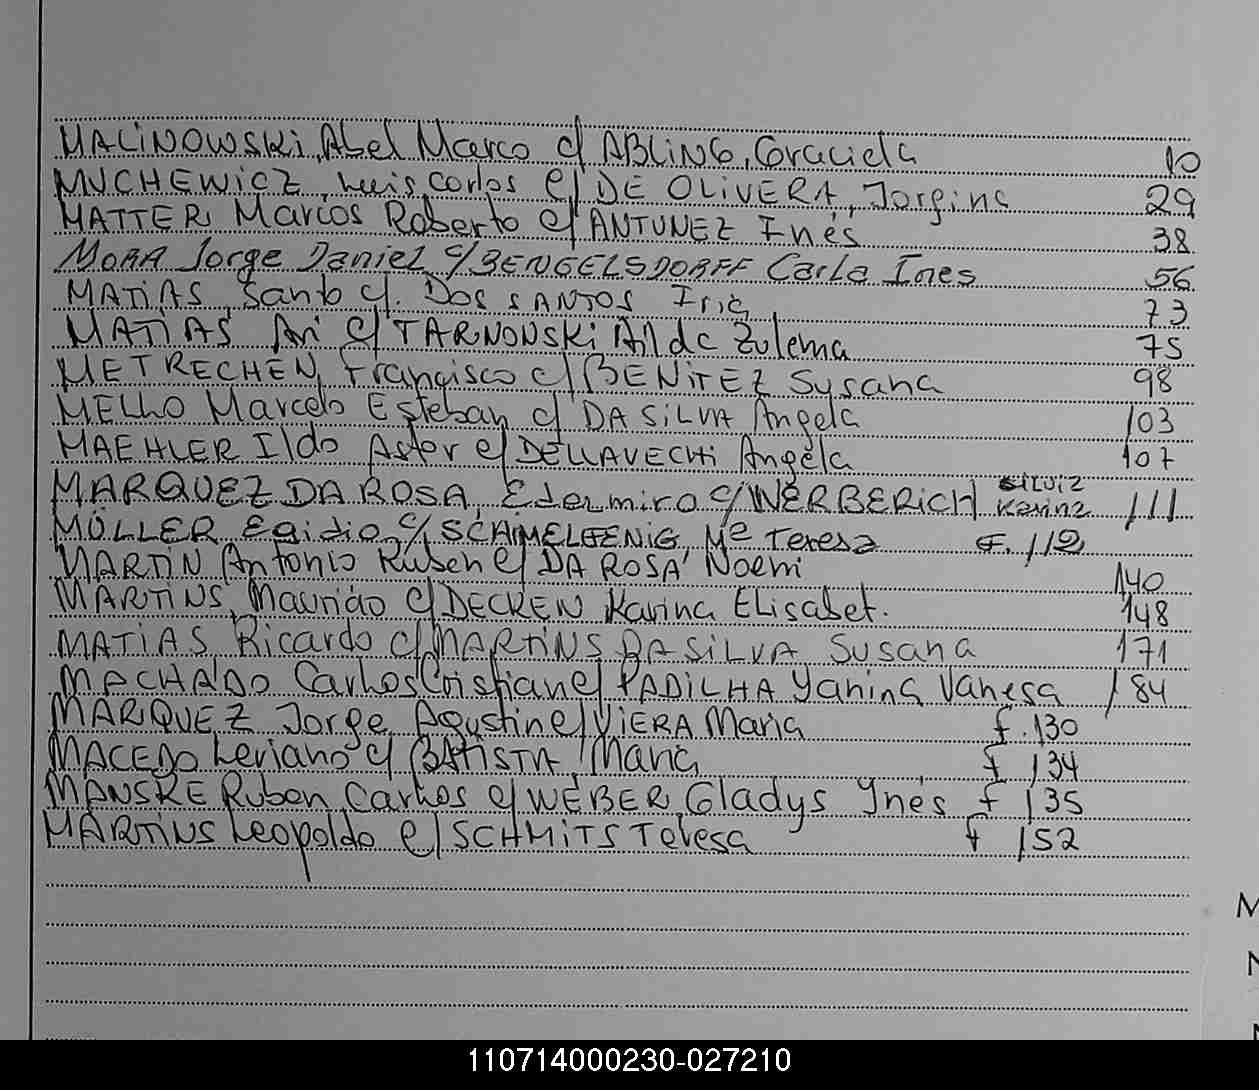 MALINOWSKI, Abel Marco c/ ABLING, Graciela 10
MUCHEWICZ, Luis Carlos c/ DE OLIVERA, Jorgina 29
MATTER Marcos Roberto c/ ANTUNEZ Inés 38
MORA Jorge Daniel c/ BENGELSDORFF Carla Ines 56
MATIAS, Santo c/. DOS SANTOS Iris 73
MATIAS, Ari c/ TARNOWSKI Zulema 75
METRECHEN, Francisco c/ BENITEZ Susana 98
MELLO Marcelo Esteban c/ DA SILVA Angela 103
MAEHLER Ildo Astor c/ DELLAVECHI Angela 107
MARQUEZ DA ROSA, Edermiro c/ WERBERICH Silvia Karina 111
MÜLLER Egidio c/ SCHIMELFENIG, Mª Teresa F. 112
MARTIN Antonio Ruben c/ DA ROSA Noemi 140
MARTINS, Mauricio c/ DECKEN Karina Elisabet. 148
MATIAS Ricardo c/ MARTINS DA SILVA Susana 171
MACHADO Carlos Cristian c/ PADILHA Yanina Vanesa 184
MARQUEZ Jorge Agustin c/ VIERA Maria f. 130
MACEDO Leriano c/ BATISTA Maria f 134
MANSKE Ruben Carlos c/ WEBER Gladys Ynés f 135
MARTINS Leopoldo c/ SCHMITS Teresa f 152
M
N
110714000230-027210